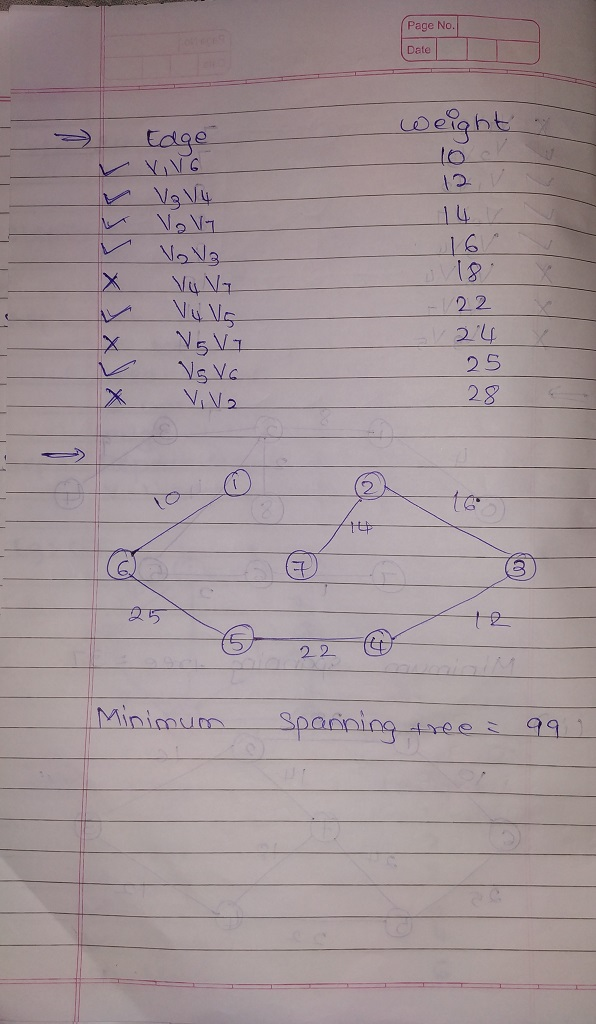 Page No.
Date
→ Edge weight
✓ V₁V₆ 10
✓ V₃V₄ 12
✓ V₂V₇ 14
✓ V₂V₃ 16
× V₄V₇ 18
✓ V₄V₅ 22
× V₅V₇ 24
✓ V₅V₆ 25
× V₁V₂ 28
→
1 2
10 16
14
6 7 3
25 12
5 22 4
Minimum Spanning tree = 99